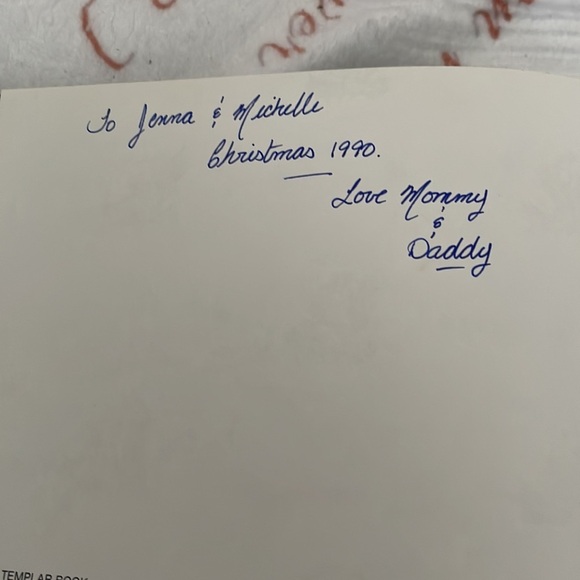 To Jenna & Michelle
Christmas 1990.
Love Mommy
&
Daddy
TEMPLAR BOOK